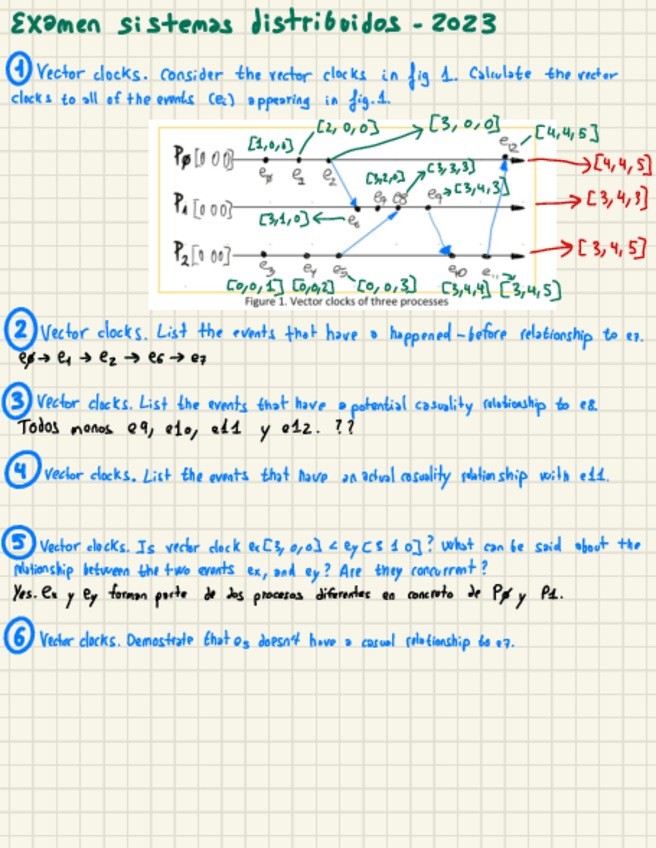 Examen sistemas distribuidos - 2023
1 Vector clocks. Consider the vector clocks in fig 1. Calculate the vector
clocks to all of the events (ei) appearing in fig. 1.
[2,0,0] [3,0,0] e12 [4,4,5]
[1,0,0]
P0 [0 0 0] e0 e1 e2 [4,4,5]
[3,2,0] [3,3,3]
e7 e8 e9 [3,4,3]
P1 [0 0 0] [3,4,3]
[3,1,0] e6
P2 [0 0 0] [3,4,5]
e3 e4 e5 e10 e11
[0,0,1] [0,0,2] [0,0,3] [3,4,4] [3,4,5]
Figure 1. Vector clocks of three processes
2 Vector clocks. List the events that have a happened-before relationship to e7.
e0 → e1 → e2 → e6 → e7
3 Vector clocks. List the events that have a potential casuality relationship to e8.
Todos monos e9, e10, e11 y e12. ??
4 Vector clocks. List the events that have an actual casuality relationship with e11.
5 Vector clocks. Is vector clock ex[3,0,0] < ey[3 1 0]? What can be said about the
relationship between the two events ex, and ey? Are they concurrent?
Yes. ex y ey forman parte de dos procesos diferentes en concreto de P0 y P1.
6 Vector clocks. Demostrate that e5 doesn't have a casual relationship to e7.